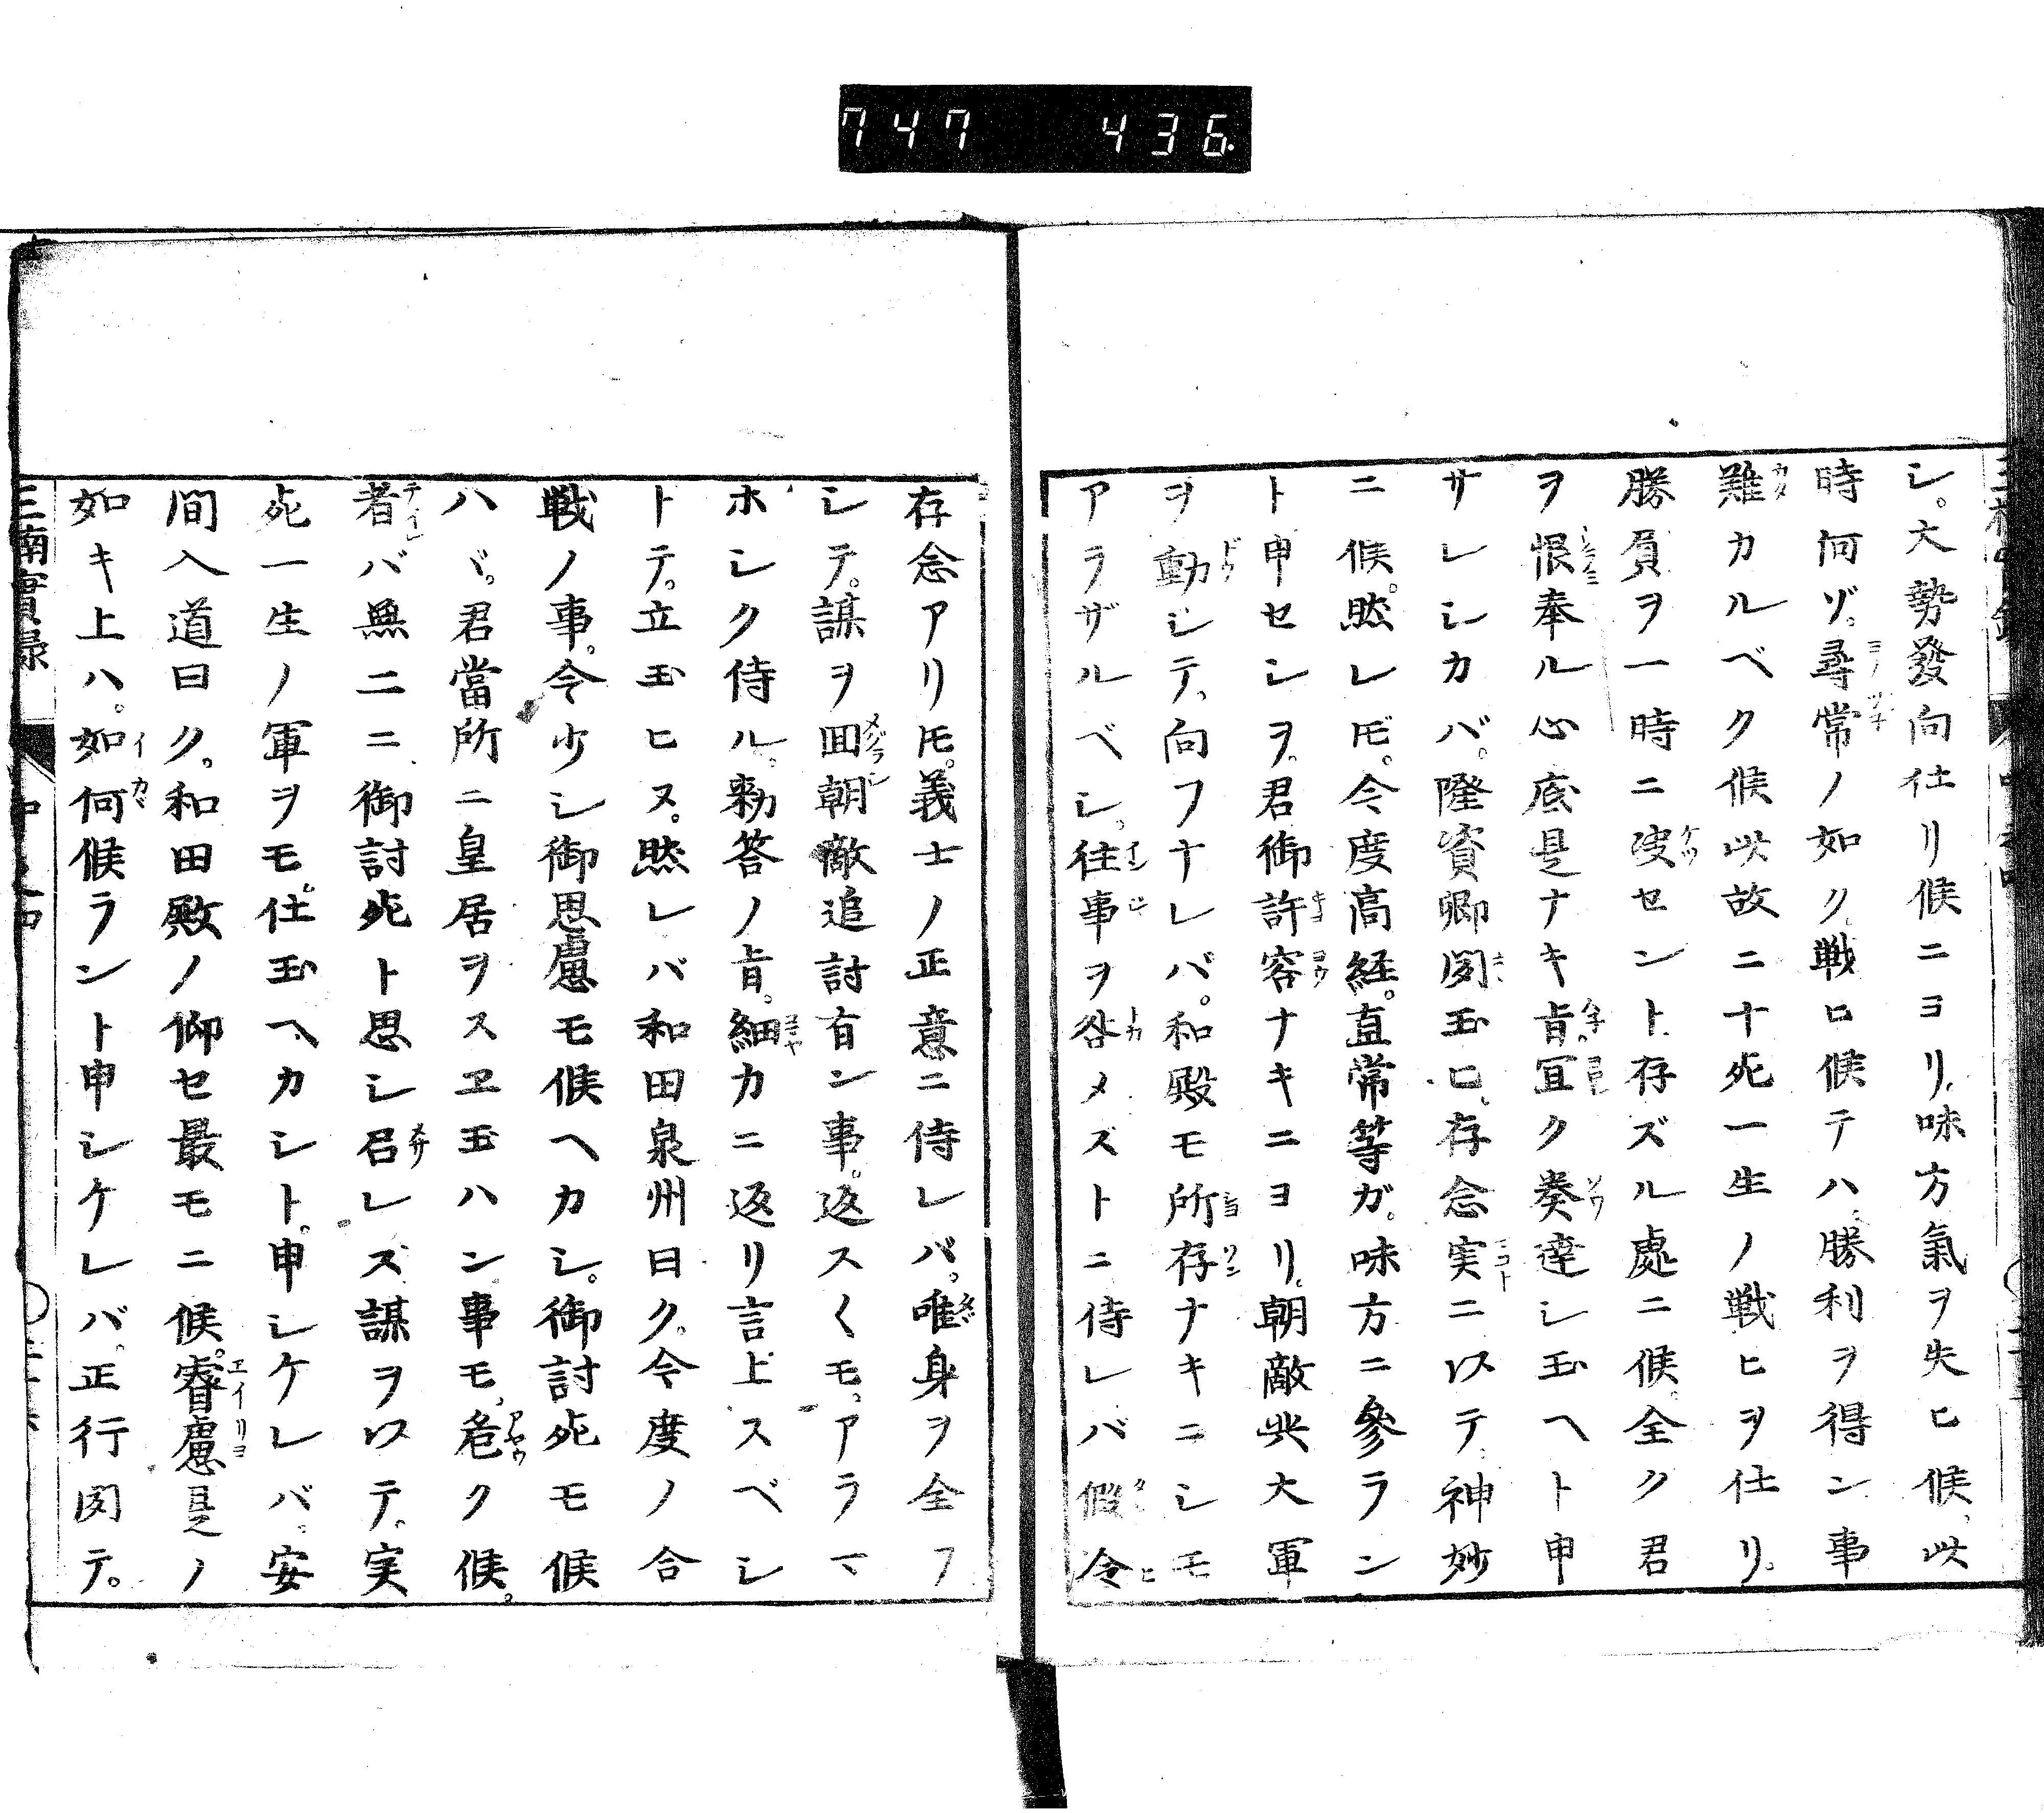 747 436.
シ。大勢發向仕リ候ニヨリ、味方氣ヲ失ヒ候、此
時何ゾ。尋常ノ如ク、戦ロ候テハ、勝利ヲ得ン事
難カルベク候此故ニ十死一生ノ戦ヒヲ仕リ。
勝負ヲ一時ニ决セント存ズル處ニ候。全ク君
ヲ恨奉ル心底是ナキ旨。冝ク奏達シ玉ヘト申
サレシカバ。隆資卿聞玉ヒ、存念実ニ以テ、神妙
ニ候。然レ𪜈。今度高経。直常等ガ。味方ニ參ラン
ト申セシヲ。君御許容ナキニヨリ、朝敵此大軍
ヲ動シテ、向フナレバ。和殿モ所存ナキニシモ
アラザルベシ。往事ヲ咎メズトニ侍レバ假令
存念アリ𪜈。義士ノ正意ニ侍レバ。唯身ヲ全フ
シテ。謀ヲ囬朝敵追討有ン事。返ス〱モ。アラマ
ホシク侍ル。勅答ノ旨。細カニ返リ言上スベシ
トテ。立玉ヒヌ。然レバ和田泉州曰ク。今度ノ合
戦ノ事。今少シ御思慮モ候ヘカシ。御討死モ候
ハヾ。君當所ニ皇居ヲスヱ玉ハン事モ、危ク候。
者バ無二ニ、御討死ト思シ召レズ謀ヲ以テ、実
死一生ノ軍ヲモ。仕玉ヘカシト。申シケレバ。安
間入道曰ク。和田殿ノ仰セ最モニ候。睿慮是ノ
如キ上ハ。如何候ラント申シケレバ。正行聞テ。
三南實録